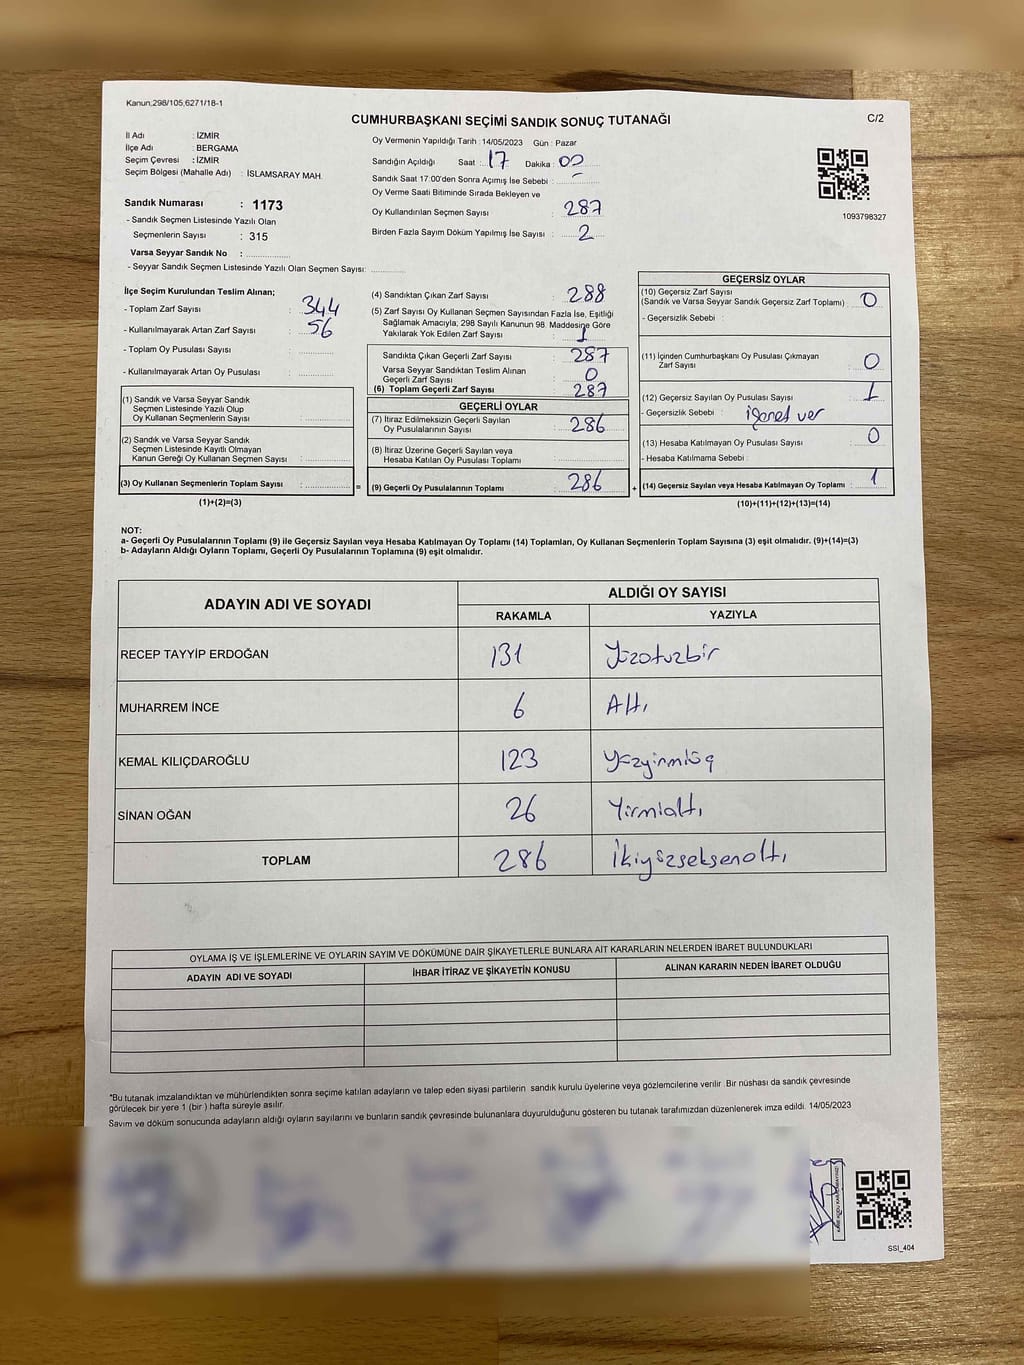 Kanun;298/105,6271/18-1
CUMHURBAŞKANI SEÇİMİ SANDIK SONUÇ TUTANAĞI
C/2
İl Adı : İZMİR
İlçe Adı : BERGAMA
Seçim Çevresi : İZMİR
Seçim Bölgesi (Mahalle Adı) : İSLAMSARAY MAH.
Sandık Numarası : 1173
- Sandık Seçmen Listesinde Yazılı Olan
Seçmenlerin Sayısı : 315
Varsa Seyyar Sandık No :
- Seyyar Sandık Seçmen Listesinde Yazılı Olan Seçmen Sayısı:
Oy Vermenin Yapıldığı Tarih : 14/05/2023 Gün : Pazar
Sandığın Açıldığı Saat : 17 Dakika : 00
Sandık Saat 17:00'den Sonra Açımış İse Sebebi : -
Oy Verme Saati Bitiminde Sırada Bekleyen ve
Oy Kullandırılan Seçmen Sayısı : 287
Birden Fazla Sayım Döküm Yapılmış İse Sayısı : 2
1093798327
İlçe Seçim Kurulundan Teslim Alınan;
- Toplam Zarf Sayısı : 344
- Kullanılmayarak Artan Zarf Sayısı : 56
- Toplam Oy Pusulası Sayısı :
- Kullanılmayarak Artan Oy Pusulası :
(1) Sandık ve Varsa Seyyar Sandık
Seçmen Listesinde Yazılı Olup
Oy Kullanan Seçmenlerin Sayısı :
(2) Sandık ve Varsa Seyyar Sandık
Seçmen Listesinde Kayıtlı Olmayan
Kanun Gereği Oy Kullanan Seçmen Sayısı :
(3) Oy Kullanan Seçmenlerin Toplam Sayısı : =
(1)+(2)=(3)
(4) Sandıktan Çıkan Zarf Sayısı : 288
(5) Zarf Sayısı Oy Kullanan Seçmen Sayısından Fazla İse, Eşitliği
Sağlamak Amacıyla; 298 Sayılı Kanunun 98. Maddesine Göre
Yakılarak Yok Edilen Zarf Sayısı : 1
Sandıkta Çıkan Geçerli Zarf Sayısı : 287
Varsa Seyyar Sandıktan Teslim Alınan
Geçerli Zarf Sayısı : 0
(6) Toplam Geçerli Zarf Sayısı : 287
GEÇERLİ OYLAR
(7) İtiraz Edilmeksizin Geçerli Sayılan
Oy Pusulalarının Sayısı : 286
(8) İtiraz Üzerine Geçerli Sayılan veya
Hesaba Katılan Oy Pusulası Toplamı :
(9) Geçerli Oy Pusulalarının Toplamı : 286 +
GEÇERSİZ OYLAR
(10) Geçersiz Zarf Sayısı
(Sandık ve Varsa Seyyar Sandık Geçersiz Zarf Toplamı) : 0
- Geçersizlik Sebebi :
(11) İçinden Cumhurbaşkanı Oy Pusulası Çıkmayan
Zarf Sayısı : 0
(12) Geçersiz Sayılan Oy Pusulası Sayısı : 1
- Geçersizlik Sebebi : işaret var
(13) Hesaba Katılmayan Oy Pusulası Sayısı : 0
- Hesaba Katılmama Sebebi :
(14) Geçersiz Sayılan veya Hesaba Katılmayan Oy Toplamı : 1
(10)+(11)+(12)+(13)=(14)
NOT:
a- Geçerli Oy Pusulalarının Toplamı (9) ile Geçersiz Sayılan veya Hesaba Katılmayan Oy Toplamı (14) Toplamları, Oy Kullanan Seçmenlerin Toplam Sayısına (3) eşit olmalıdır. (9)+(14)=(3)
b- Adayların Aldığı Oyların Toplamı, Geçerli Oy Pusulalarının Toplamına (9) eşit olmalıdır.
ADAYIN ADI VE SOYADI
ALDIĞI OY SAYISI
RAKAMLA YAZIYLA
RECEP TAYYİP ERDOĞAN 131 Yüzotuzbir
MUHARREM İNCE 6 Altı
KEMAL KILIÇDAROĞLU 123 Yüzyirmiüç
SİNAN OĞAN 26 Yirmialtı
TOPLAM 286 İkiyüzseksenaltı
OYLAMA İŞ VE İŞLEMLERİNE VE OYLARIN SAYIM VE DÖKÜMÜNE DAİR ŞİKAYETLERLE BUNLARA AİT KARARLARIN NELERDEN İBARET BULUNDUKLARI
ADAYIN ADI VE SOYADI İHBAR İTİRAZ VE ŞİKAYETİN KONUSU ALINAN KARARIN NEDEN İBARET OLDUĞU
*Bu tutanak imzalandıktan ve mühürlendikten sonra seçime katılan adayların ve talep eden siyasi partilerin sandık kurulu üyelerine veya gözlemcilerine verilir. Bir nüshası da sandık çevresinde
görülecek bir yere 1 (bir ) hafta süreyle asılır.
Sayım ve döküm sonucunda adayların aldığı oyların sayılarını ve bunların sandık çevresinde bulunanlara duyurulduğunu gösteren bu tutanak tarafımızdan düzenlenerek imza edildi. 14/05/2023
SSI_404